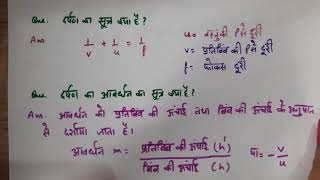 Que. दर्पण का सूत्र क्या है ?
Ans. 1/v + 1/u = 1/f
u = वस्तु की P से दूरी
v = प्रतिबिंब की P से दूरी
f = फोकस दूरी
Que. दर्पण का आवर्धन का सूत्र क्या है ?
Ans. आवर्धन को प्रतिबिंब की ऊंचाई तथा बिंब की ऊंचाई के अनुपात
से दर्शाया जाता है।
आवर्धन m = प्रतिबिंब की ऊंचाई (h') / बिंब की ऊंचाई (h) या = -v/u